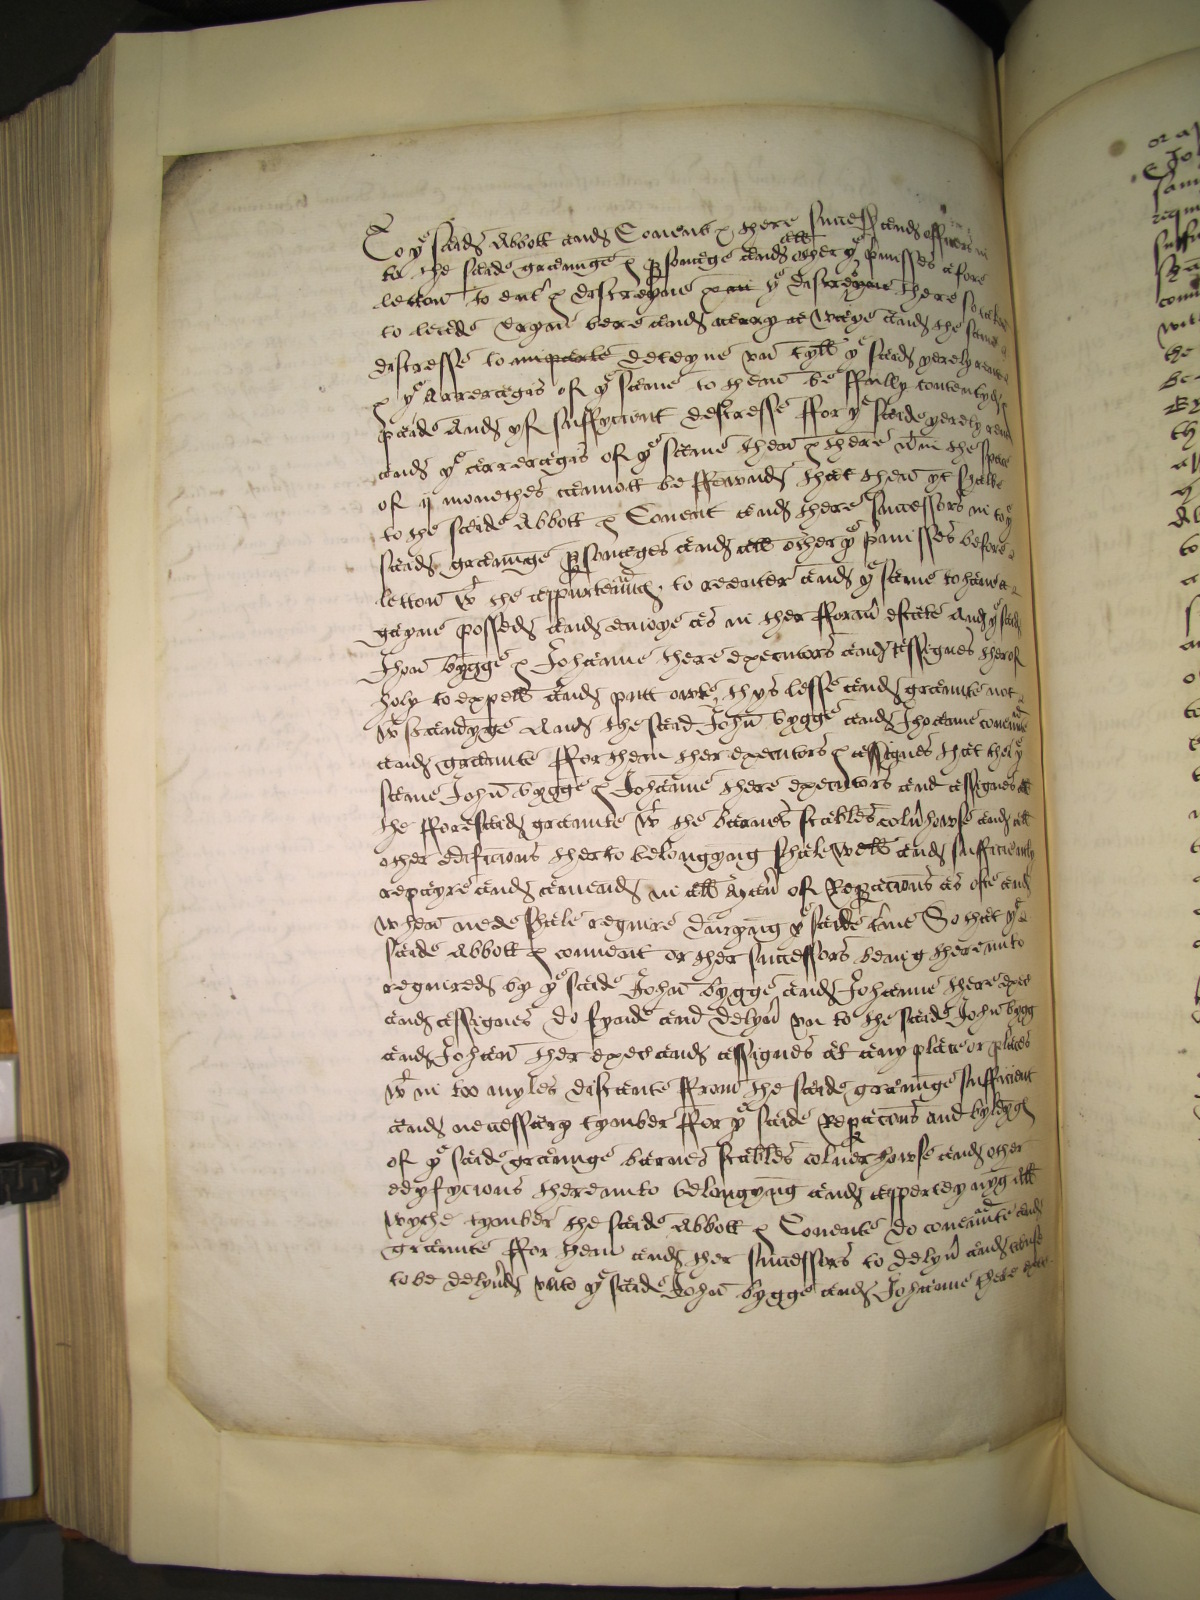 To ye saide Abbott and Couent & there success and officers in
to the saide graunge & psonege and all other ye pmisses afore
letton to entr & distreyne & ye distreyne there so
to leade dryue bere and carry a waye and the same
distresse to deteyne vn tyll ye said yerely rente
& ye Arreragis of ye same to them be ffully contentyd &
paide And yf suffycient destresse ffor ye saide yerely rent
and ye arreragis of ye same then & there wt in the space
of ij monethes cannott be ffownde that then yt shalbe
to the saide Abbott & Couent and there successors in to ye
said graunge psoneges and all other ye pmisses before
letton wt the appurtennce to reenter and ye same to haue a
gayne possede and enioye as in ther fformer estate And ye said
Jhon bygge & Johanne there executors and assignes therof
holy to expell and putt owte thys lesse and graunte not
wt standyge And the said John bygge and Jhoanne couennte
and graunte ffor them ther executors & assignes that they ye
same John bygge & Johanne there executors and assignes all
the fforesaid graunte wt the barnes stables coluerhowse and all
other edificions therto belongyng shale well and sufficiently
repayre and amende in all maner of Repacions as ofte and
when nede shale require duryng ye saide tme So that ye
saide Abbott & conuent or ther successors being there vnto
required by ye saide John bygge and Johanne there exec
and assignes do fynde and delyuer vn to the saide John bygg
and Johan ther exec and assignes at any place or places
wt in too myles distante ffrom the saide graunge sufficient
and necessary tymber ffor ye saide Repacons and byldyg
of ye saide graunge barnes stables coluerhowse and other
edyfycions there vnto belongyng and apperteynyg all
wyche tymber the saide Abbott & Couente do couennte and
graunte ffor them and ther successors to delyuer and cause
to be delyuerd vnto ye saide John bygge and Johanne there exec